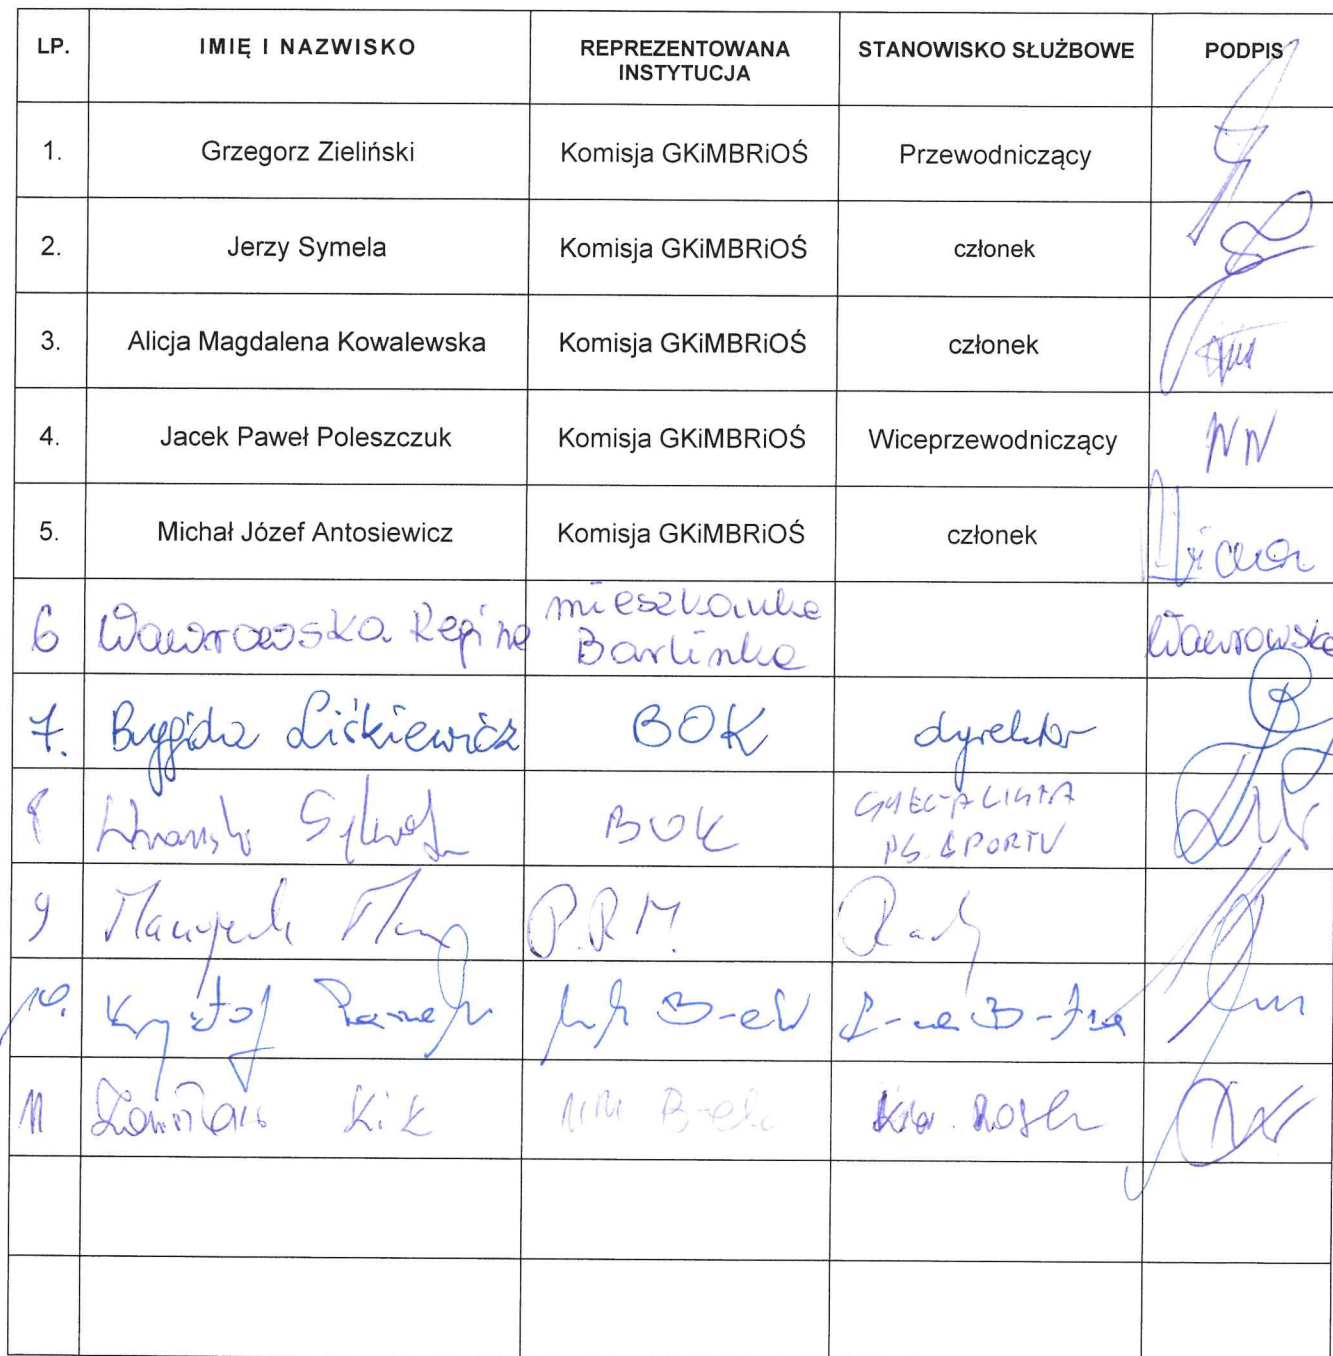 LP. IMIĘ I NAZWISKO REPREZENTOWANA INSTYTUCJA STANOWISKO SŁUŻBOWE PODPIS
1. Grzegorz Zieliński Komisja GKiMBRiOŚ Przewodniczący
2. Jerzy Symela Komisja GKiMBRiOŚ członek
3. Alicja Magdalena Kowalewska Komisja GKiMBRiOŚ członek
4. Jacek Paweł Poleszczuk Komisja GKiMBRiOŚ Wiceprzewodniczący NN
5. Michał Józef Antosiewicz Komisja GKiMBRiOŚ członek
6 Wawrowska Regina mieszkanka Barlinka Wawrowska
7. Brygida Liśkiewicz BOK dyrektor
8 BOK SPECJALISTA DS. SPORTU
9 P.R.M.
10. Krzysztof
11 Kik